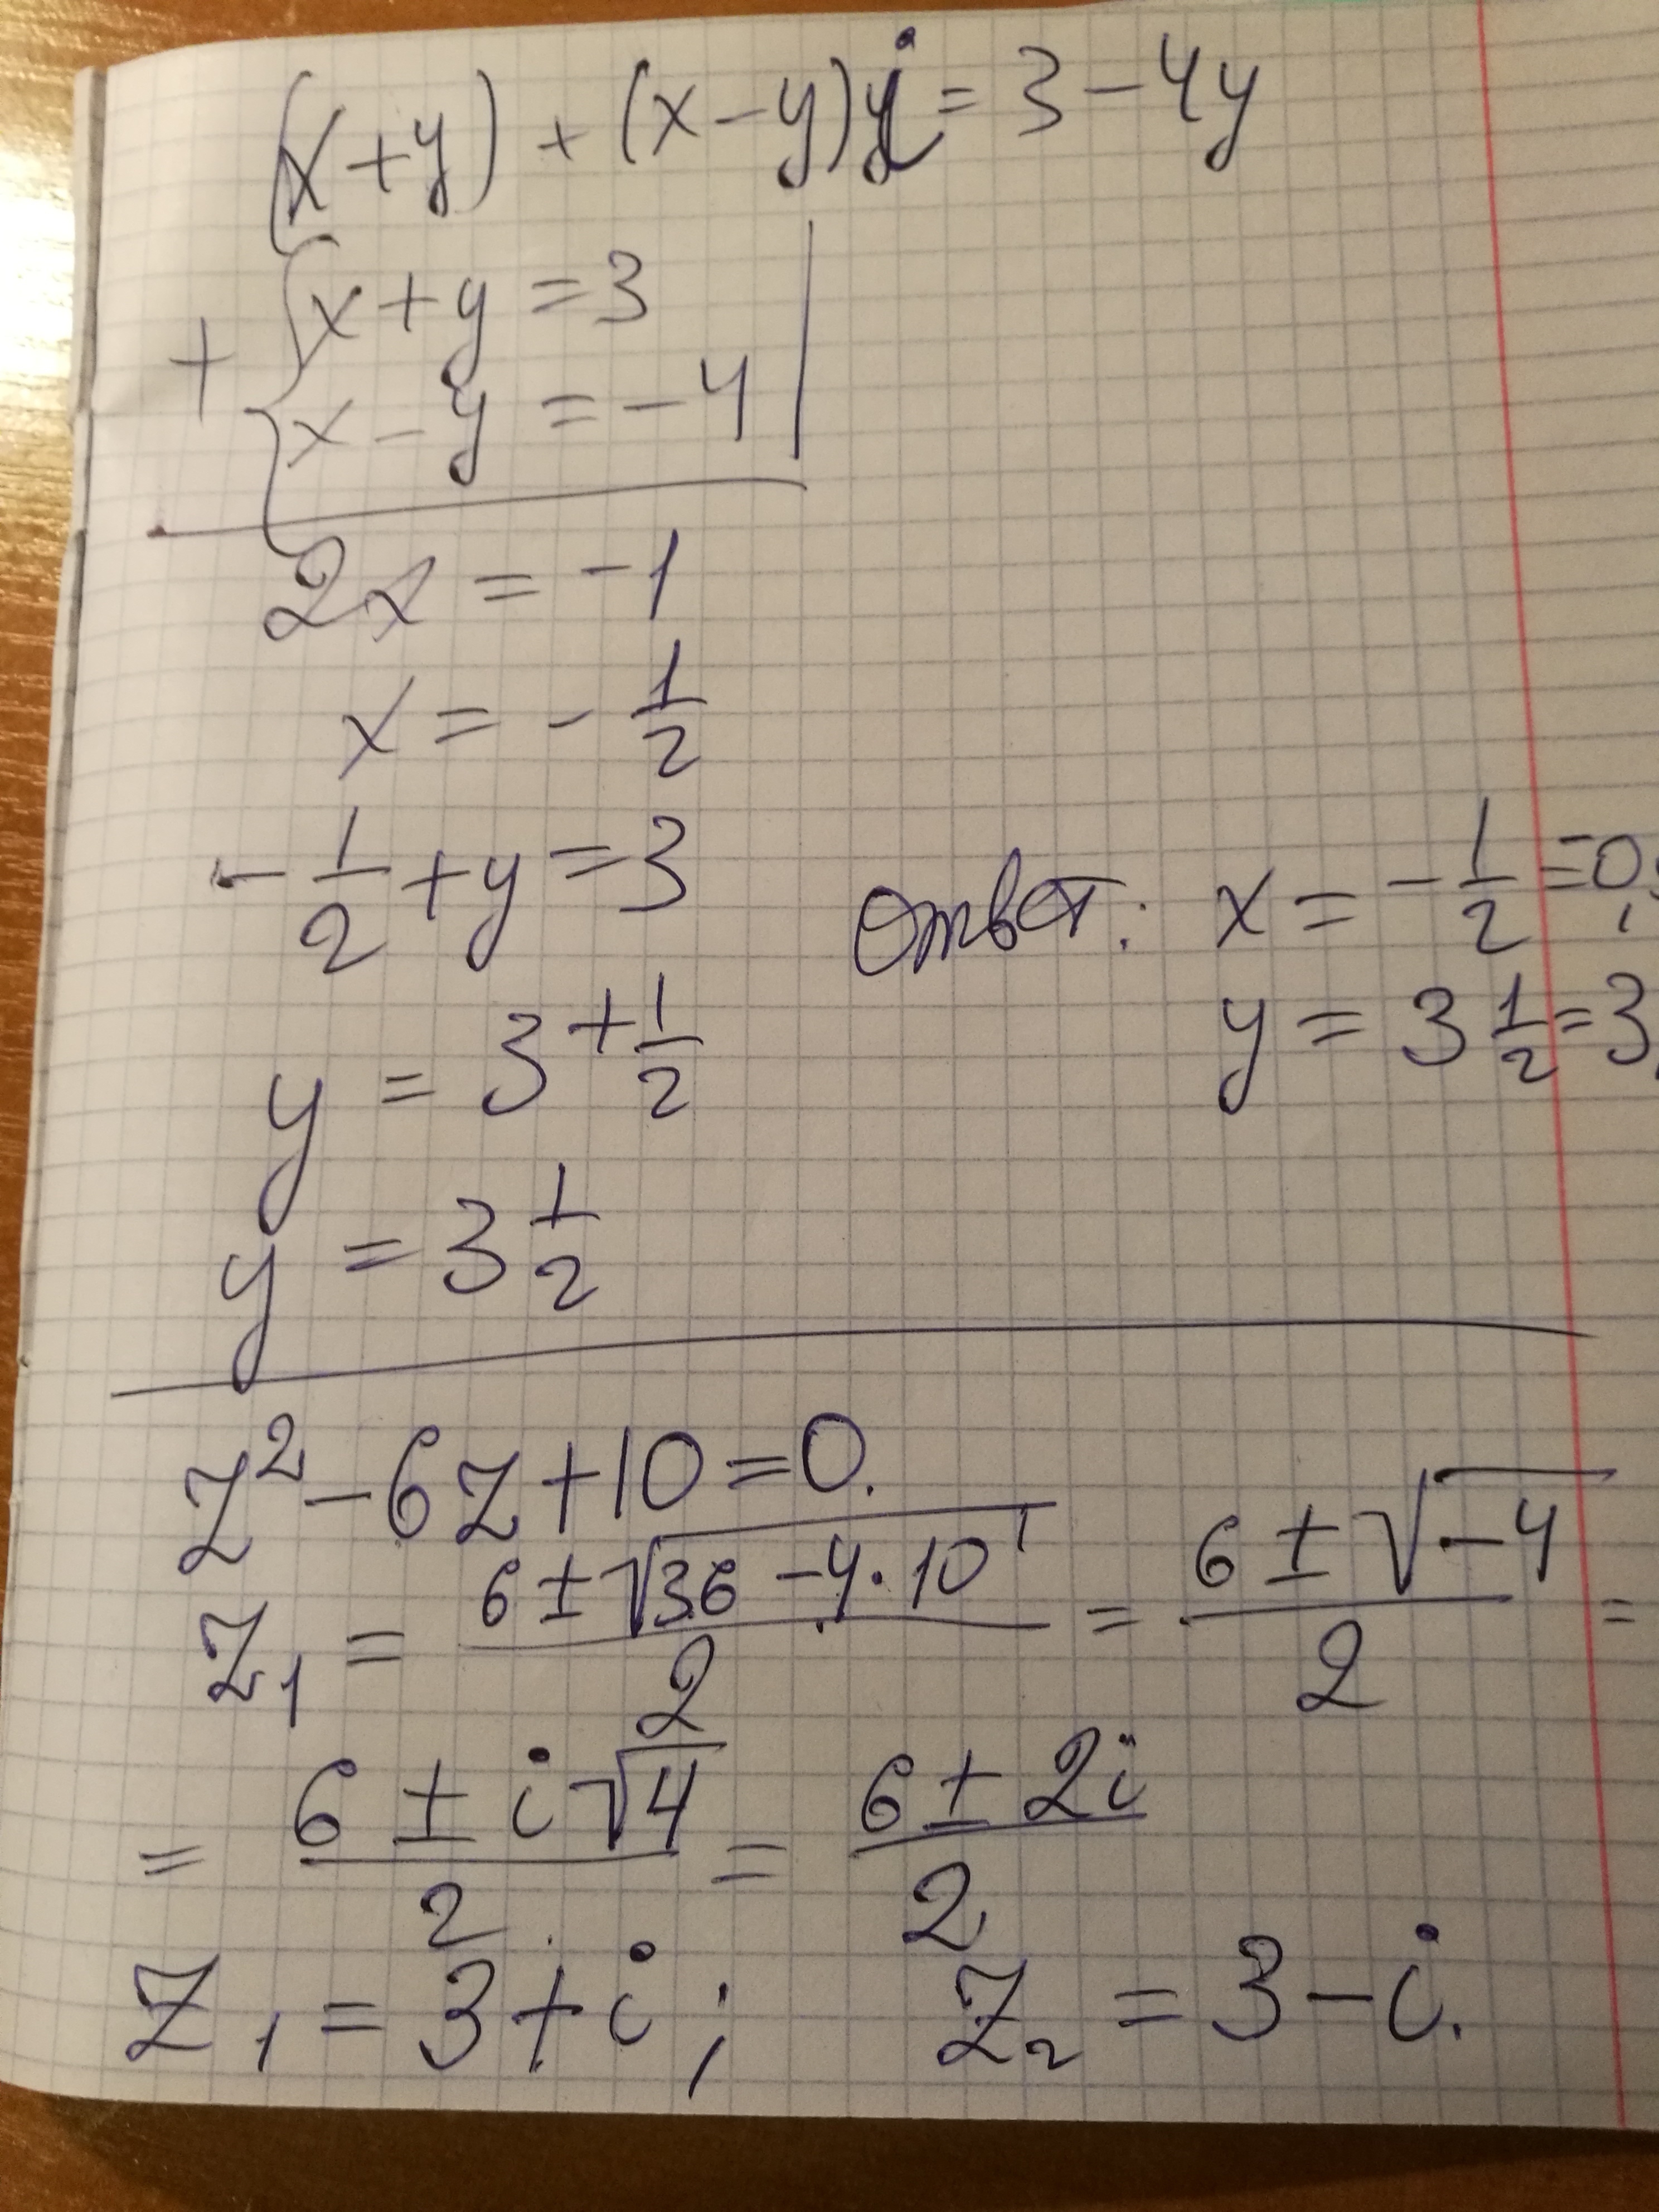 (x+y) + (x-y)i = 3-4y
+ { x+y = 3
x-y = -4
2x = -1
x = - 1/2
- 1/2 + y = 3
y = 3 + 1/2
y = 3 1/2
Ответ: x = - 1/2 = 0,
y = 3 1/2 = 3
z² - 6z + 10 = 0.
z₁ = (6 ± √(36 - 4·10))/2 = (6 ± √-4)/2 =
= (6 ± i√4)/2 = (6 ± 2i)/2
z₁ = 3 + i; z₂ = 3 - i.